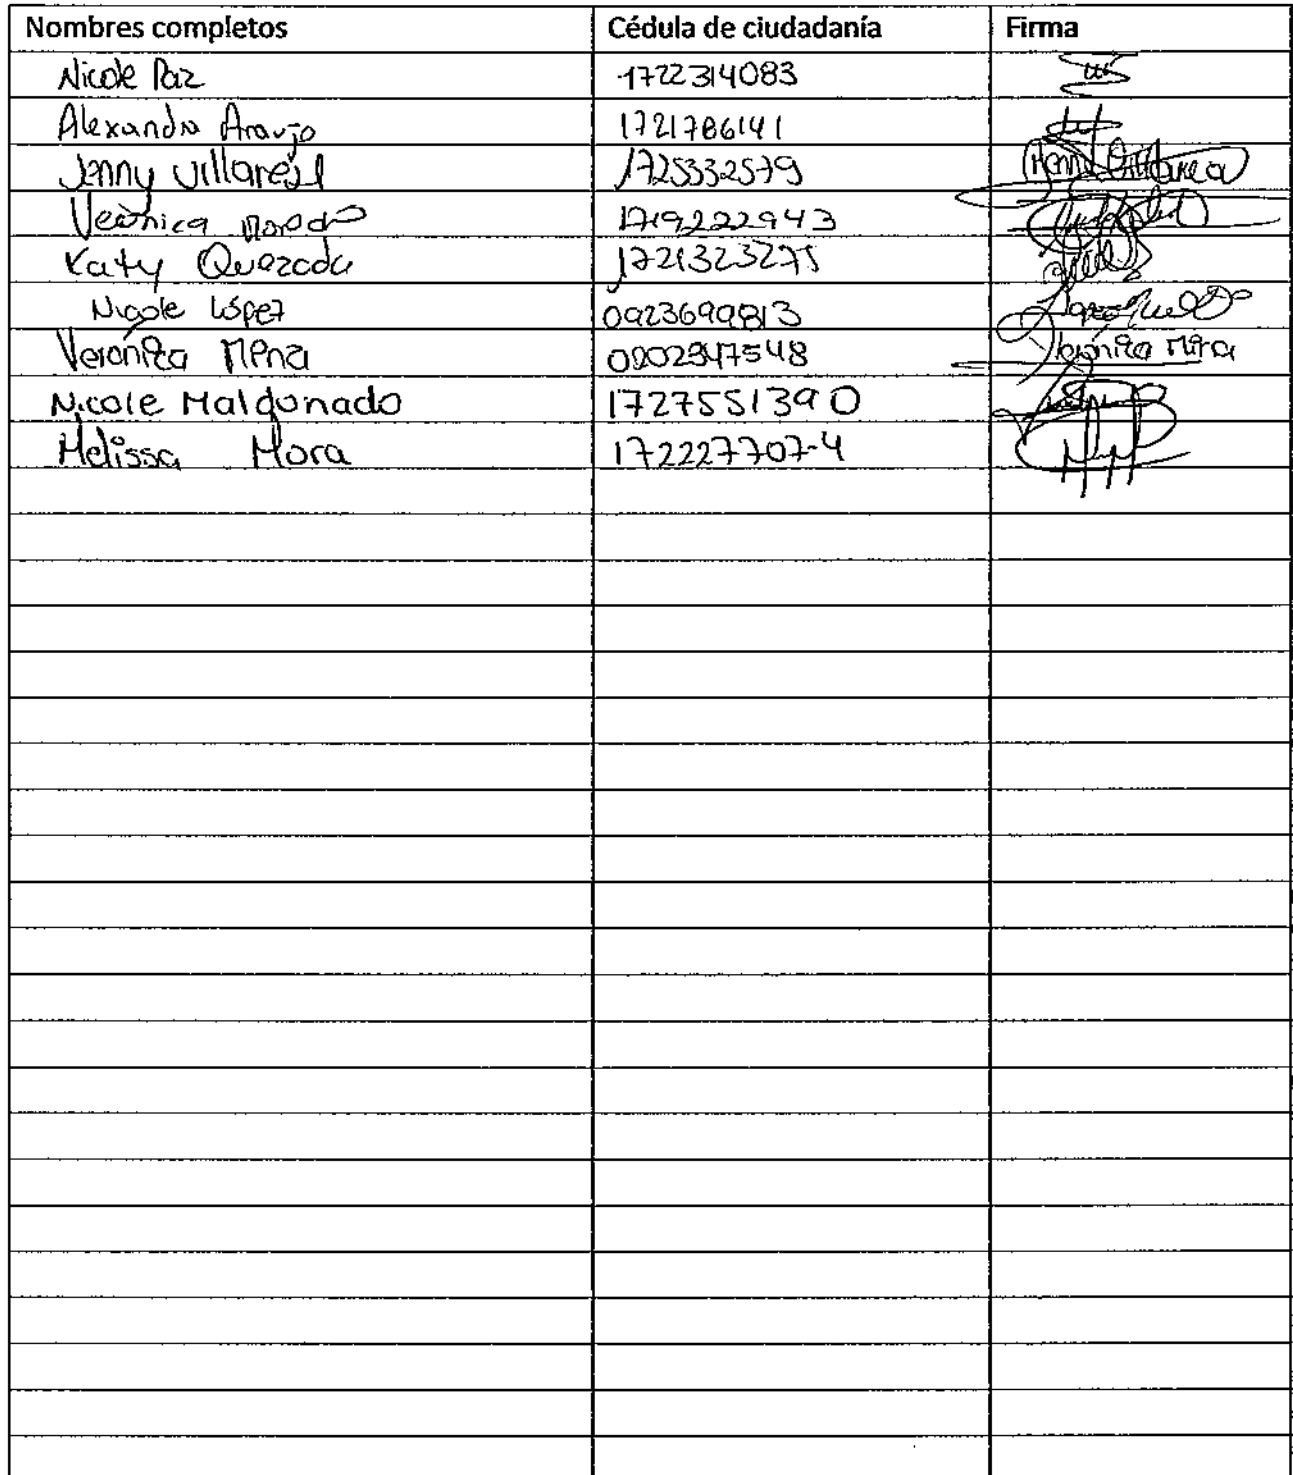 Nombres completos Cédula de ciudadanía Firma
Nicole Paz 1722314083
Alexandra Araujo 1721786141
Jenny Villareal 1725332579 Jenny Villareal
Verónica 1719222943
Katy Quezada 1721323275
Nicole López 0923699813
Verónica Mena 0202347548 Verónica Mena
Nicole Maldonado 1727551390
Melissa Mora 172227707-4